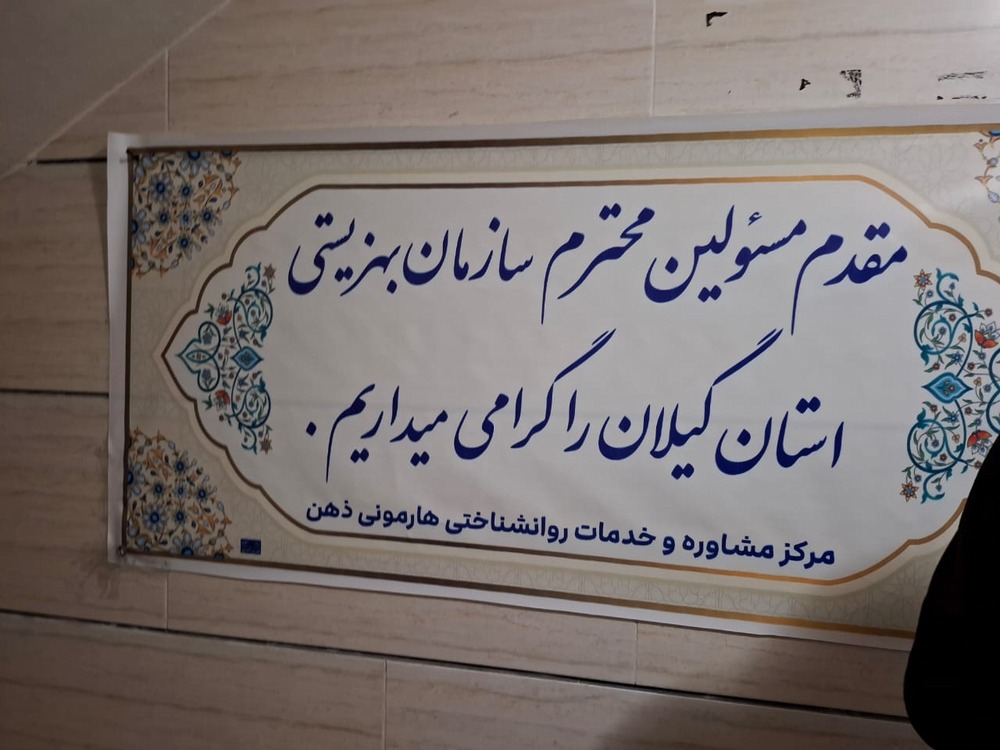 مقدم مسئولین محترم سازمان بهزیستی
استان گیلان را گرامی میداریم .
مرکز مشاوره و خدمات روانشناختی هارمونی ذهن